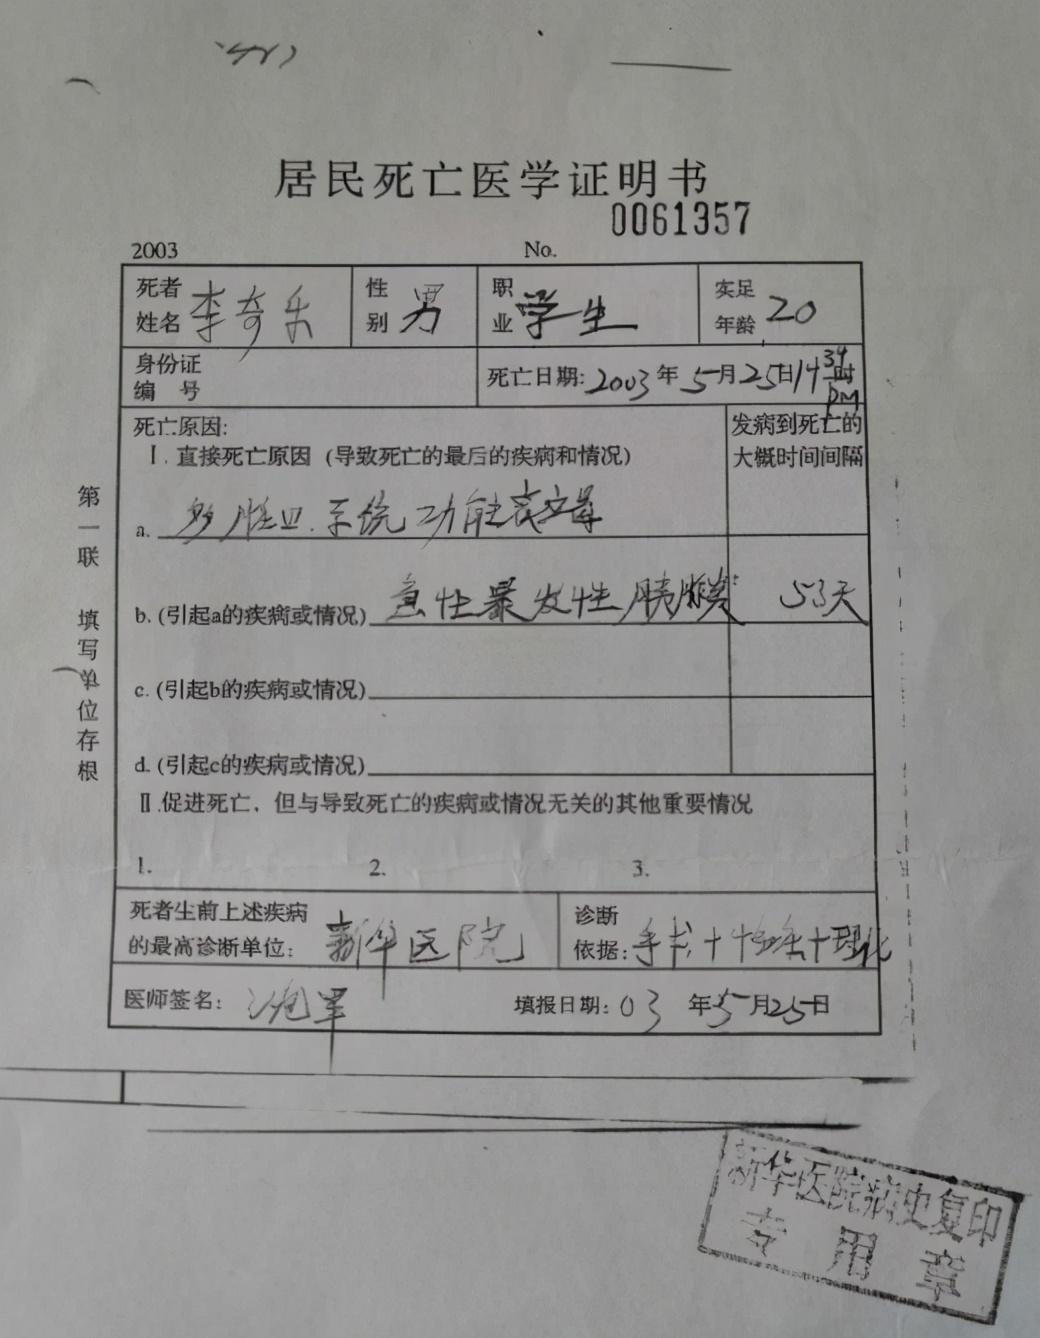 居民死亡医学证明书
0061357
2003 No.
死者姓名 李奇乐 性别 男 职业 学生 实足年龄 20
身份证编号 死亡日期: 2003年5月25日14 34时 PM
死亡原因: 发病到死亡的大概时间间隔
Ⅰ. 直接死亡原因 (导致死亡的最后的疾病和情况)
a. 多脏.系统功能衰竭
b. (引起a的疾病或情况) 急性暴发性胰腺炎 53天
c. (引起b的疾病或情况)
d. (引起c的疾病或情况)
Ⅱ.促进死亡、但与导致死亡的疾病或情况无关的其他重要情况
1. 2. 3.
死者生前上述疾病的最高诊断单位: 新华医院 诊断依据: 手术+ +理化
医师签名: 填报日期: 03年5月25日
第一联 填写单位存根
新华医院病史复印
专用章